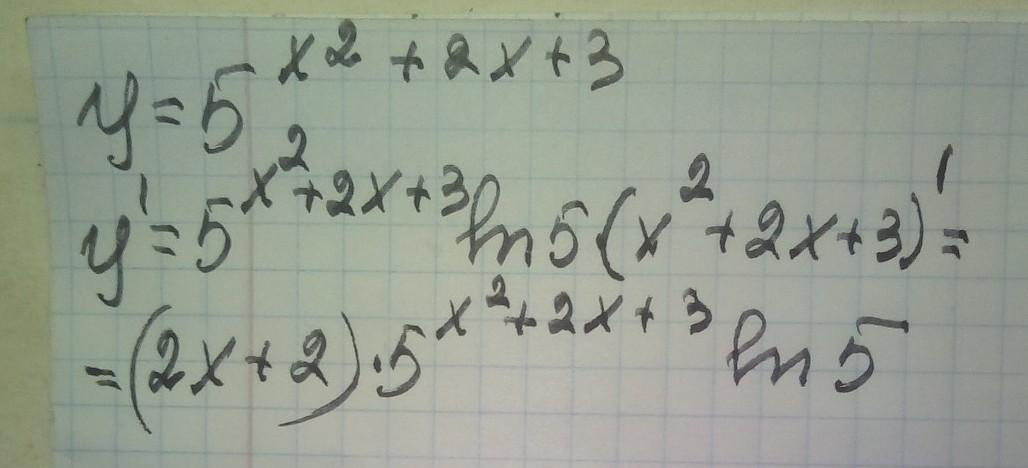 y = 5^{x^2 + 2x + 3}
y' = 5^{x^2 + 2x + 3} ln 5 (x^2 + 2x + 3)' =
= (2x + 2) · 5^{x^2 + 2x + 3} ln 5